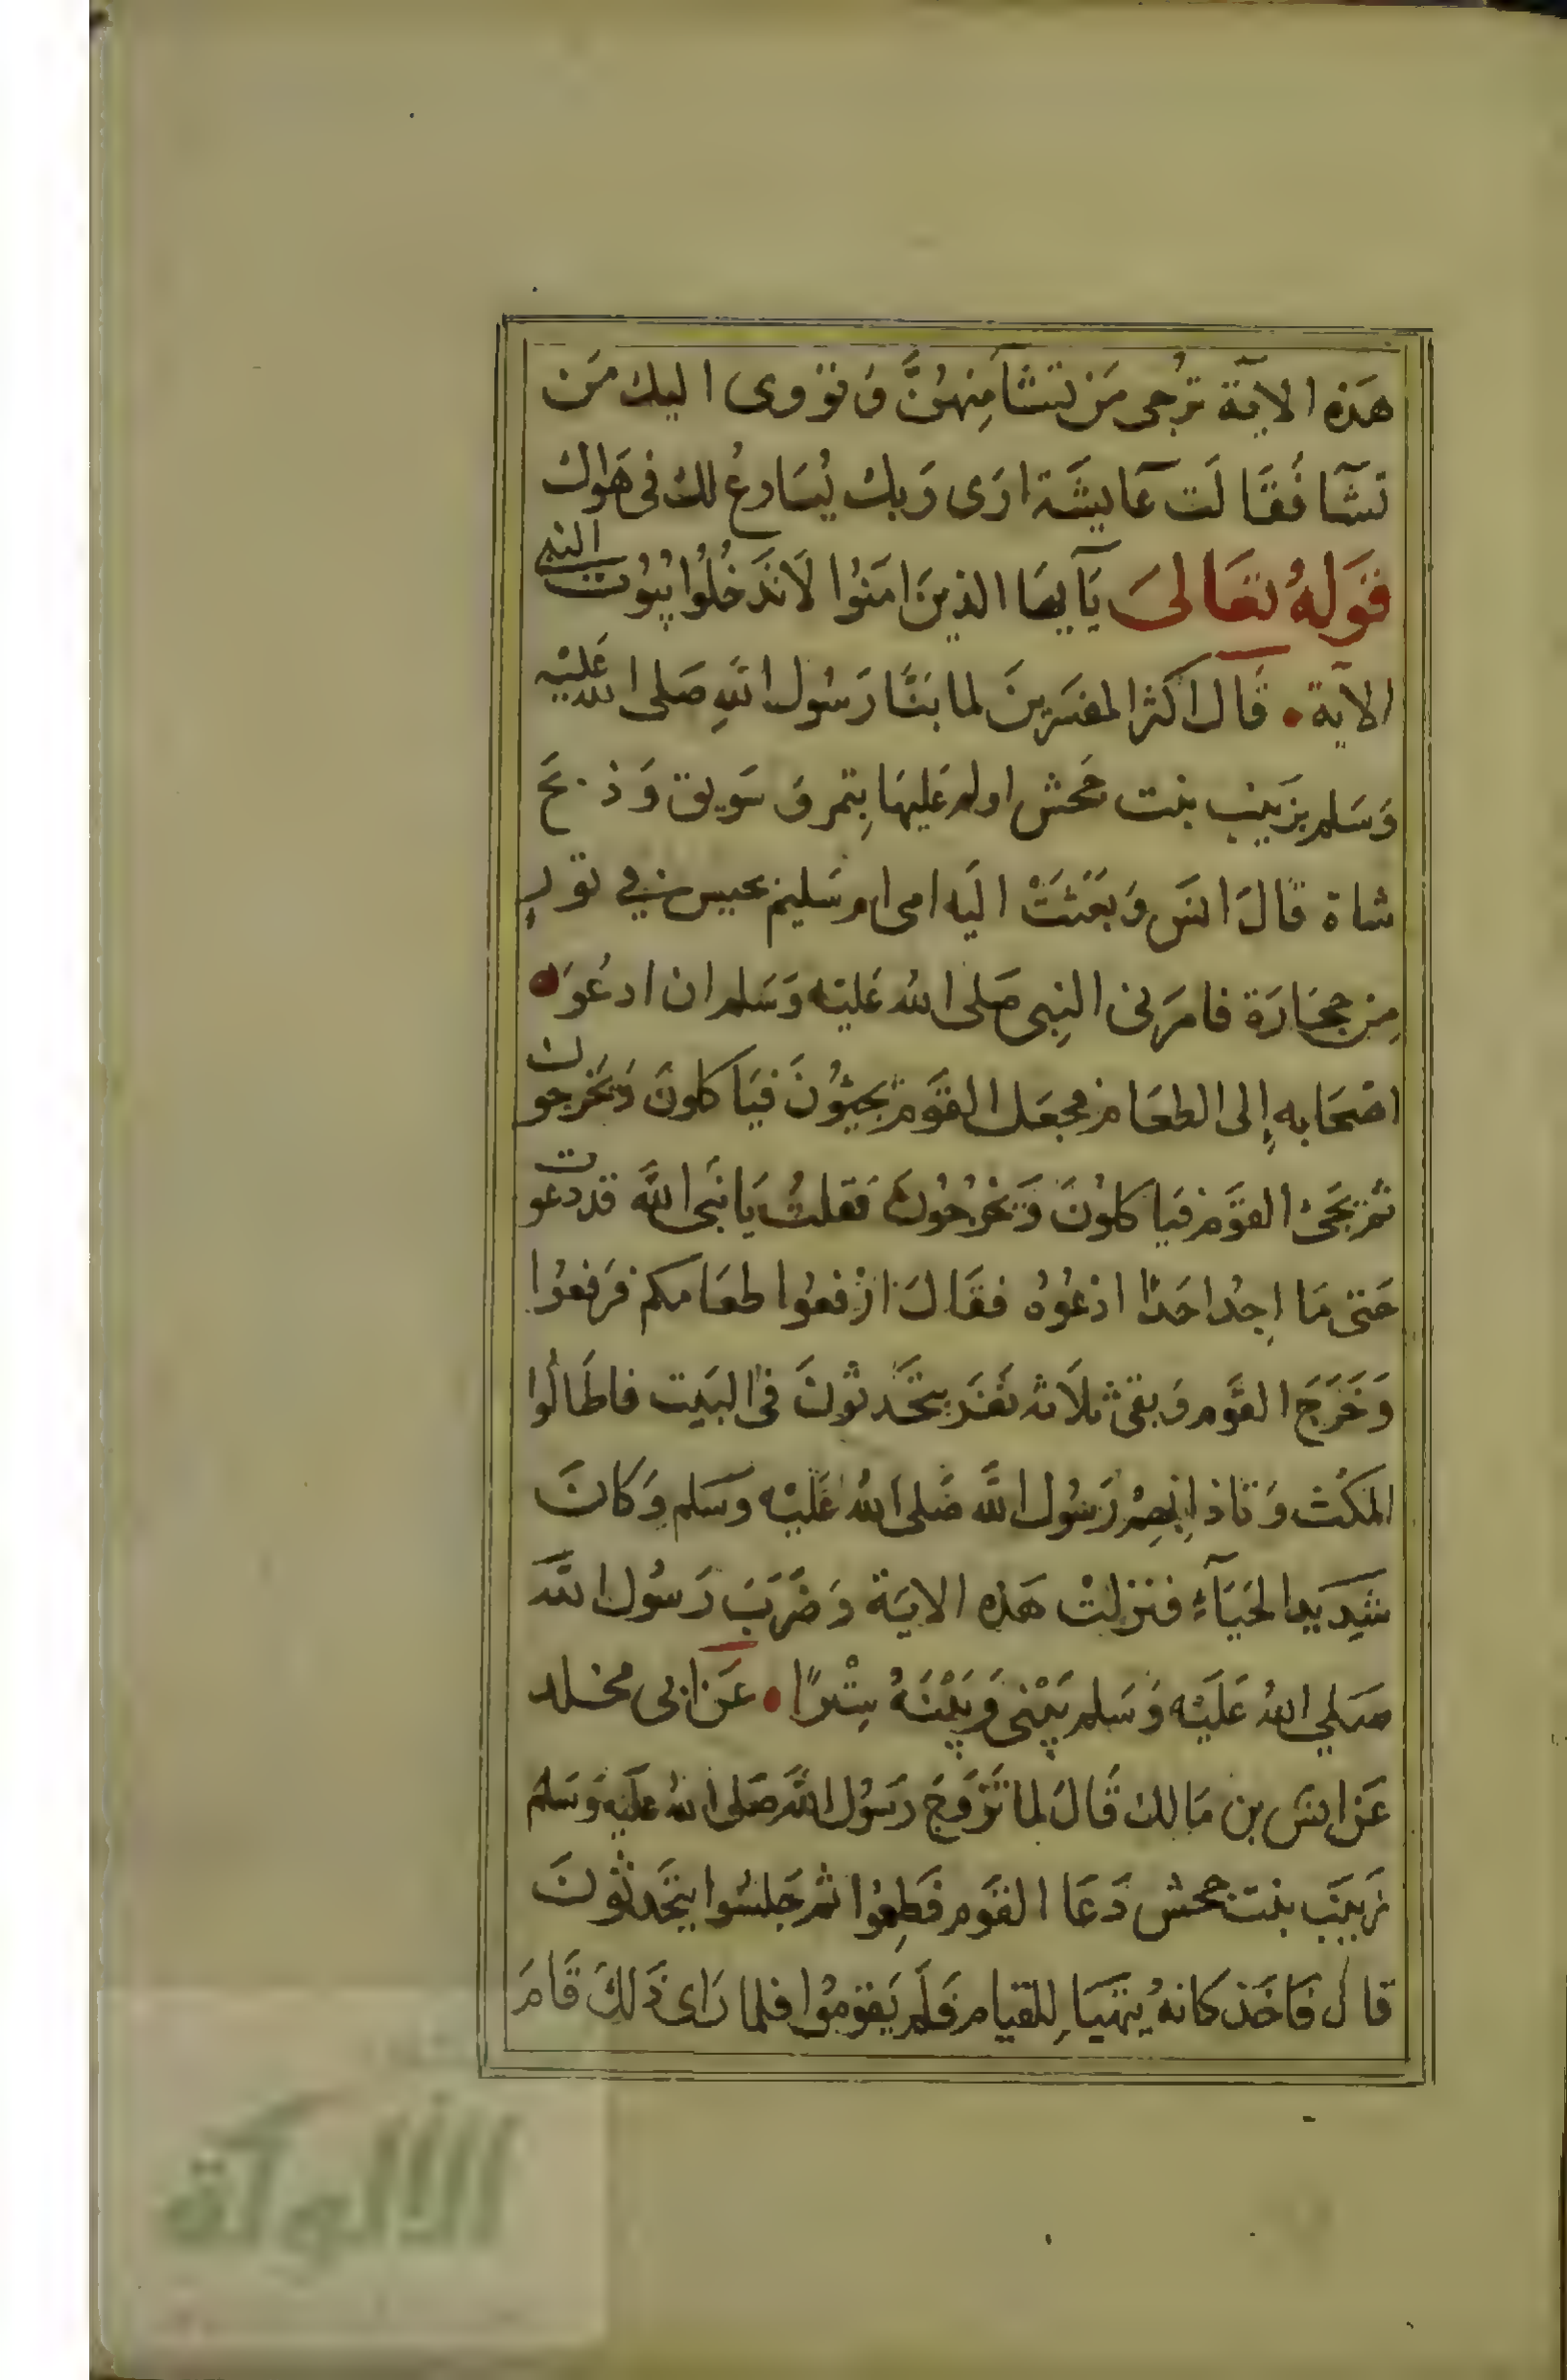 هَذِه الايَة تُرجى مَن تشَا مِنهُنَّ وَ تؤوى اليك مَن
تشَآ فَقَالَت عَايشَة ارَى رَبك يُسَارعُ لك فى هَواك
قَولهُ تعَالىَ يَآ ايهَا الذينَ امَنُوا لَا تَدخُلُوا بيُوُت النبى
الاية • قَال اكثر المفسَرينَ لما بَنَا رَسُول اللهِ صَلى الله عَليْه
وَسَلم بزَينب بنت جَحش اولم عَليهَا بِتمر وَ سَويق وَ ذبَح
شاة قَالَ انسَ وَ بَعَثَتْ اليَه امى ام سَليم بحيس في تور
مِن حجَارَة فامرَنى النبِى صَلى الله عَليْه وَسَلم ان ادعُوَ له
اصْحَابه إِلى الطعَام فجعَل القَوم يَجيؤُنَ فيَا كلونَ وَيَخرجون
ثمَ يَجئ القَوم فيَا كلوُنَ وَيَخرُجُونَ فَقلتُ يَا نَبى اللهَ قد دعوت
حَتى مَا اجِدُ احَدًا ادْعُوُه فقَالَ ارْفعُوا طعَامكم فرَفعُوا
وَ خَرَجَ القَوم وَ بقى ثلَاثه نَفَر يتحَدثونَ فى البَيت فاطَالُوا
المكُث وَ تاذا بِهِمْ رَسُول اللهَ صَلى اللهُ عَليْه وسَلم وَ كانَ
شدِيد الحَيَآءِ فنزلتْ هَذِه الايَة وَ ضَرَبَ رَسُول اللهَ
صَلي اللهُ عَليَه وَ سَلم بَيْنى وَ بَيْنَهُ سِتْرًا • عَن ابى مخلد
عَن انسَ بن مَالك قَالَ لما تَزوَجَ رَسُول اللهَ صَلى اللهُ عَليَه وَسَلم
زَينَبَ بنت جحش دَعَا القَوم فَطعِمُوا ثم جَلسُوا يتحَدثُونَ
قال فَاخَذ كانهُ يتهَيَا لِلقيام فَلَم يَقومُوا فلما رَاى ذَلِكَ قَامَ
الألوكة